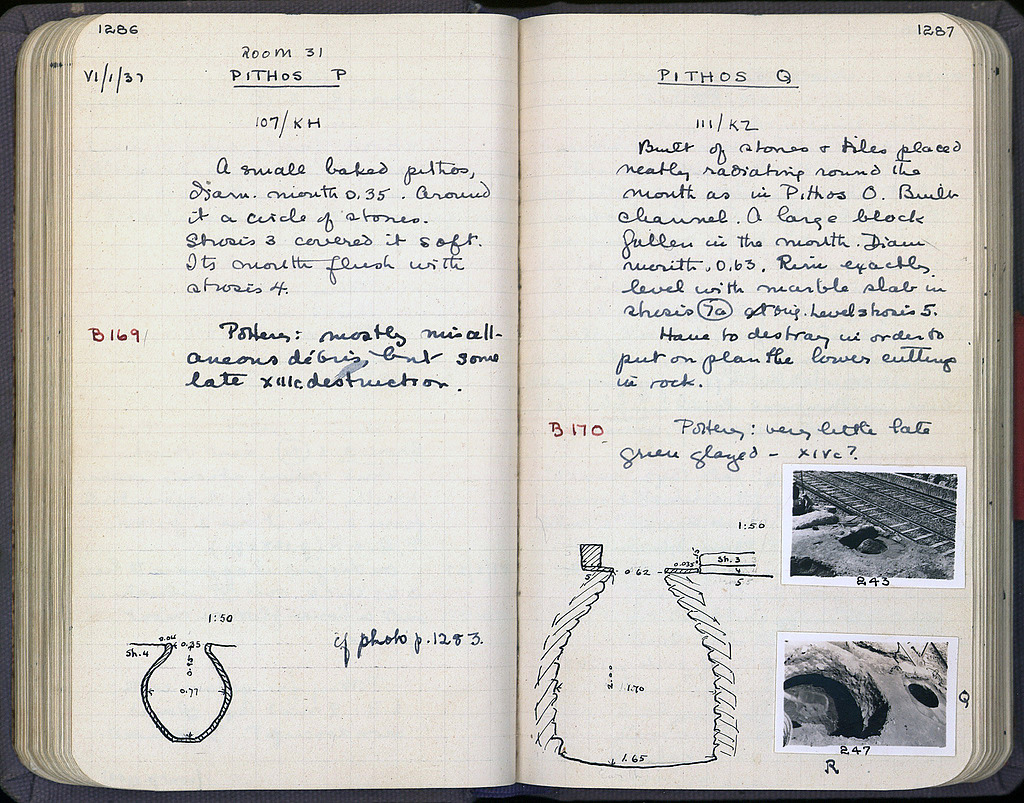 1286
ROOM 31
VI/1/37
PITHOS P
107/KH
A small baked pithos,
Diam. mouth 0.35. Around
it a circle of stones.
Strosis 3 covered it soft.
Its mouth flush with
strosis 4.
B 169
Pottery: mostly miscell-
aneous débris, but some
late XIIIc destruction.
1:50
0.04
0.35
Sh. 4
0.77
cf photo p. 1283.
1287
PITHOS Q
111/KZ
Built of stones & tiles placed
neatly radiating round the
mouth as in Pithos O. Built
channel. A large block
fallen in the mouth. Diam
mouth, 0.63. Rim exactly
level with marble slab in
strosis 7a orig. level strosis 5.
Have to destroy in order to
put on plan the lower cutting
in rock.
B 170
Pottery: very little late
green glazed – XIVc?
1:50
Sh. 3
0.035
4
5
0.62
5
2.00
1.70
1.65
243
247
Q
R